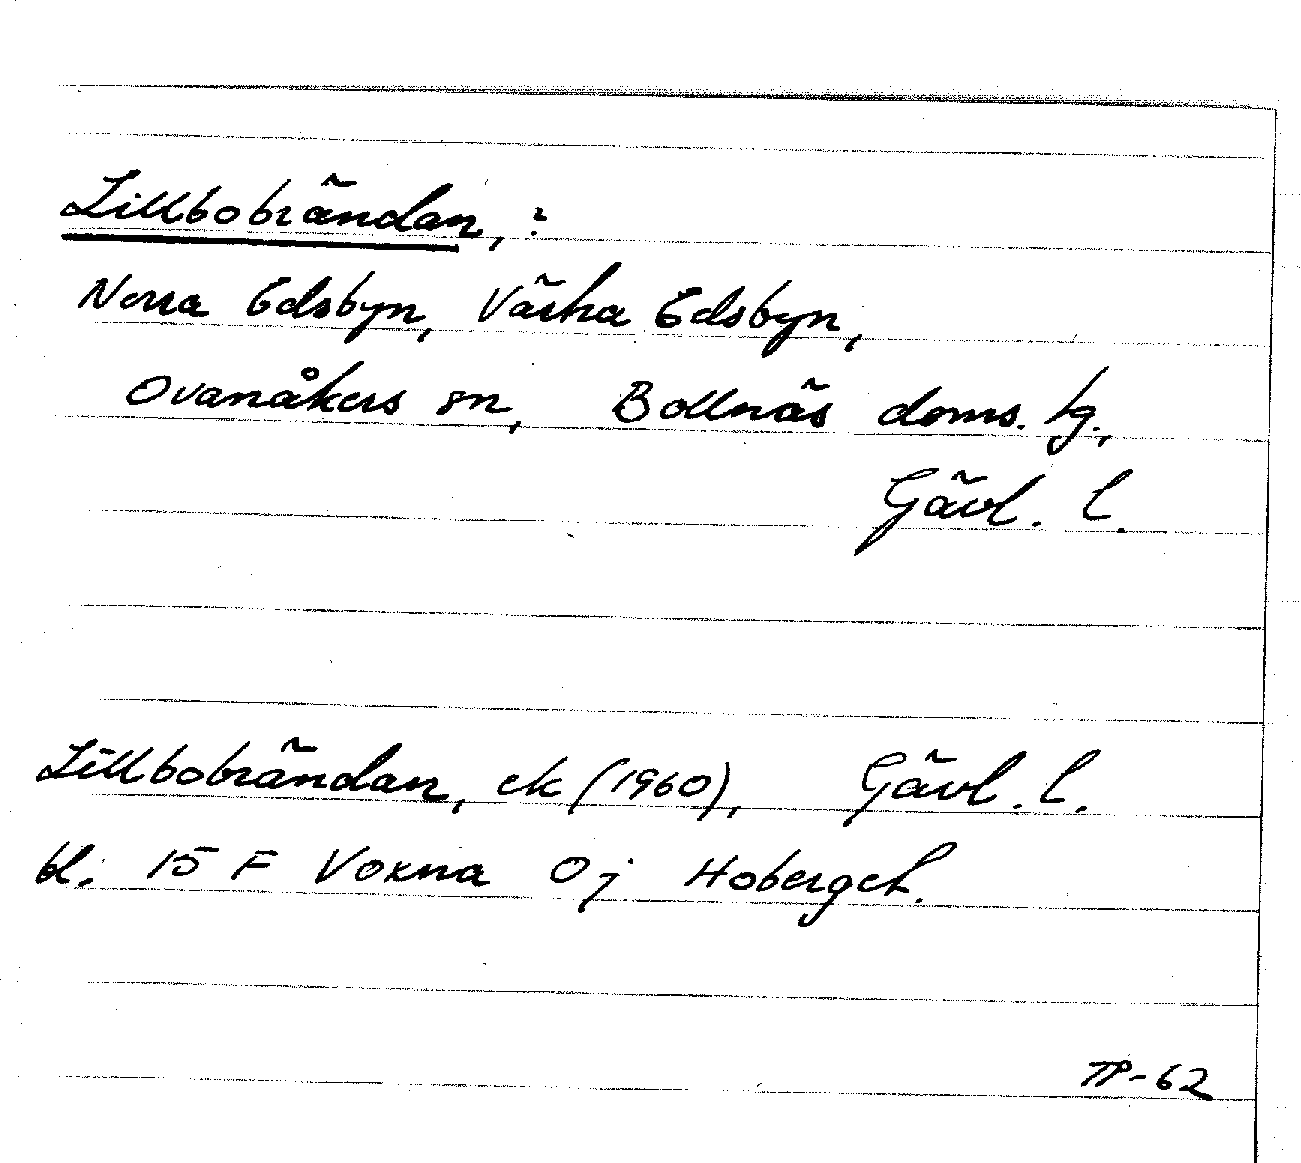 Lillbobrändan, :
Norra Edsbyn, Västra Edsbyn,
Ovanåkers sn, Bollnäs doms. tg.,
Gävl. l.
Lillbobrändan, ek (1960), Gävl. l.
bl. 15 F Voxna 0j Hoberget.
TP-62